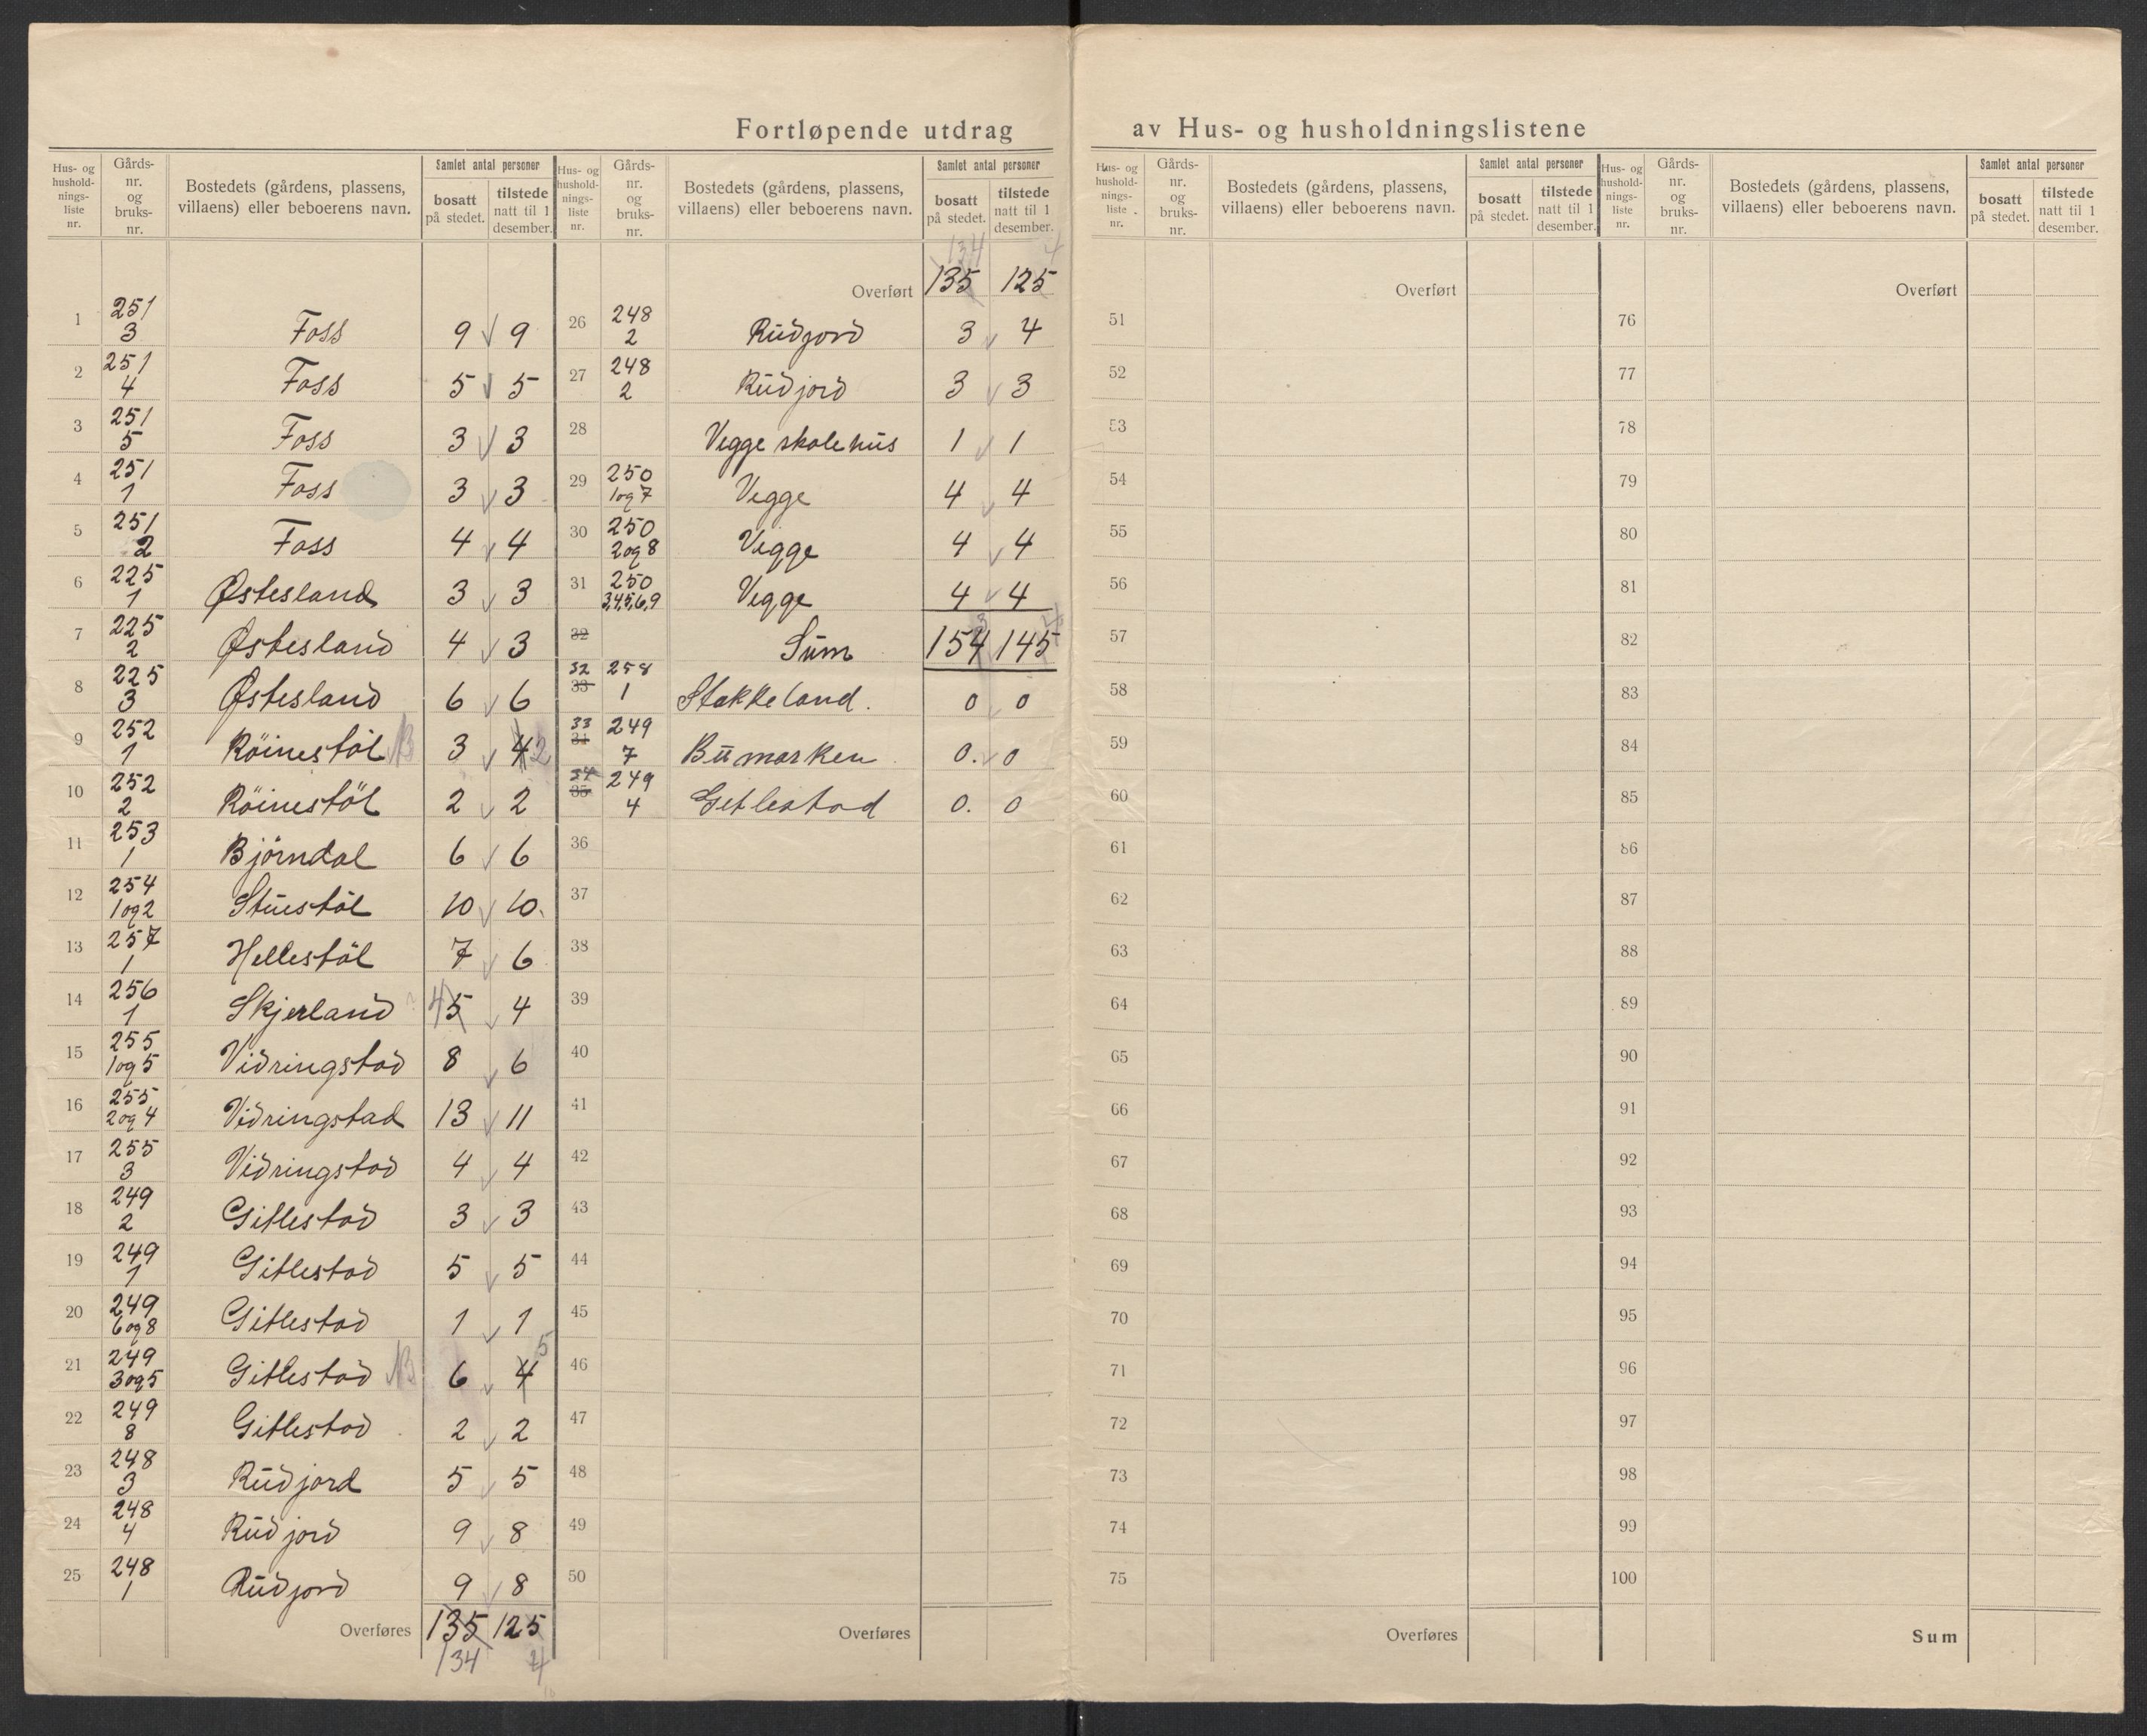 Fortløpende utdrag av Hus- og husholdningslistene
Hus- og hushold-nings-liste nr. Gårds-nr. og bruks-nr. Bostedets (gårdens, plassens, villaens) eller beboerens navn. Samlet antal personer bosatt på stedet. tilstede natt til 1 desember.
1 251 3 Foss 9 9
2 251 4 Foss 5 5
3 251 5 Foss 3 3
4 251 1 Foss 3 3
5 251 2 Foss 4 4
6 225 1 Østesland 3 3
7 225 2 Østesland 4 3
8 225 3 Østesland 6 6
9 252 1 Röinestöl NB 3 4 2
10 252 2 Röinestöl 2 2
11 253 1 Björndal 6 6
12 254 1og2 Stuestöl 10 10
13 257 1 Hellestöl 7 6
14 256 1 Skjerland 4 5 4
15 255 1og5 Vidringstad 8 6
16 255 2og4 Vidringstad 13 11
17 255 3 Vidringstad 4 4
18 249 2 Gitlestad 3 3
19 249 1 Gitlestad 5 5
20 249 6og8 Gitlestad 1 1
21 249 3og5 Gitlestad NB 6 4 5
22 249 8 Gitlestad 2 2
23 248 3 Rudjord 5 5
24 248 4 Rudjord 9 8
25 248 1 Rudjord 9 8
Overføres 135 125
134 4
Hus- og hushold-nings-liste nr. Gårds-nr. og bruks-nr. Bostedets (gårdens, plassens, villaens) eller beboerens navn. Samlet antal personer bosatt på stedet. tilstede natt til 1 desember.
134 4
Overført 135 125
26 248 2 Rudjord 3 4
27 248 2 Rudjord 3 3
28 Vegge skolehus 1 1
29 250 1og7 Vegge 4 4
30 250 2og8 Vegge 4 4
31 250 3,4,5,6,9 Vegge 4 4
32 Sum 154 145
32 33 258 1 Stakkeland. 0 0
33 34 249 7 Bumarken 0. 0
34 35 249 4 Gitlestad 0. 0
36
37
38
39
40
41
42
43
44
45
46
47
48
49
50
Overføres
Hus- og hushold-nings-liste nr. Gårds-nr. og bruks-nr. Bostedets (gårdens, plassens, villaens) eller beboerens navn. Samlet antal personer bosatt på stedet. tilstede natt til 1 desember.
Overført
51
52
53
54
55
56
57
58
59
60
61
62
63
64
65
66
67
68
69
70
71
72
73
74
75
Overføres
Hus- og hushold-nings-liste nr. Gårds-nr. og bruks-nr. Bostedets (gårdens, plassens, villaens) eller beboerens navn. Samlet antal personer bosatt på stedet. tilstede natt til 1 desember.
Overført
76
77
78
79
80
81
82
83
84
85
86
87
88
89
90
91
92
93
94
95
96
97
98
99
100
Sum